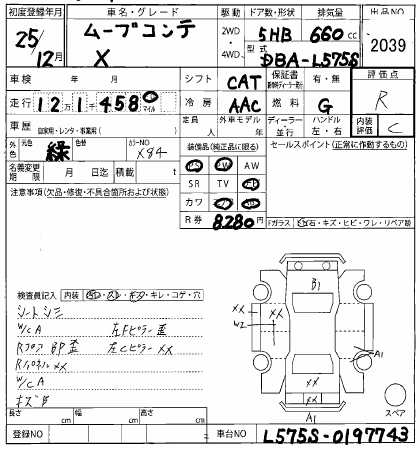 初度登録年月 車名・グレード 駆動 ドア数・形状 排気量 出品NO
25/12月 ムーブコンテ X 2WD・4WD 5HB 660cc 2039
型式 DBA-L575S
車検 年 月 シフト CAT 保証書 有・無 評価点 R
走行 12万1千458 マイル 冷房 AAC 燃料 G
車歴 自家用・レンタ・事業用( ) 定員 人 外車モデル 年 ディーラー・並行 ハンドル 左・右 内装評価 C
外色 元色 緑 色替 カラーNO X84 装備品(純正品に限る) セールスポイント(正常に作動するもの)
PS PW AW
名義変更期限 月 日迄 積載 t SR TV
注意事項(欠品・修復・不具合箇所および状態) カワ
R券 8280円 Fガラス 石・キズ・ヒビ・ワレ・リペア跡
検査員記入 内装 キレ・コゲ・穴
シートシミ
W/CA 左Fピラー歪
Rフロア BP歪 左Cピラー XX
Rパネル XX
W/CA
キズ
B1
XX XX
W2
A1
XX
XX
A1
スペア
長さ cm 幅 cm 高さ cm
登録NO 車台NO L575S-0197743